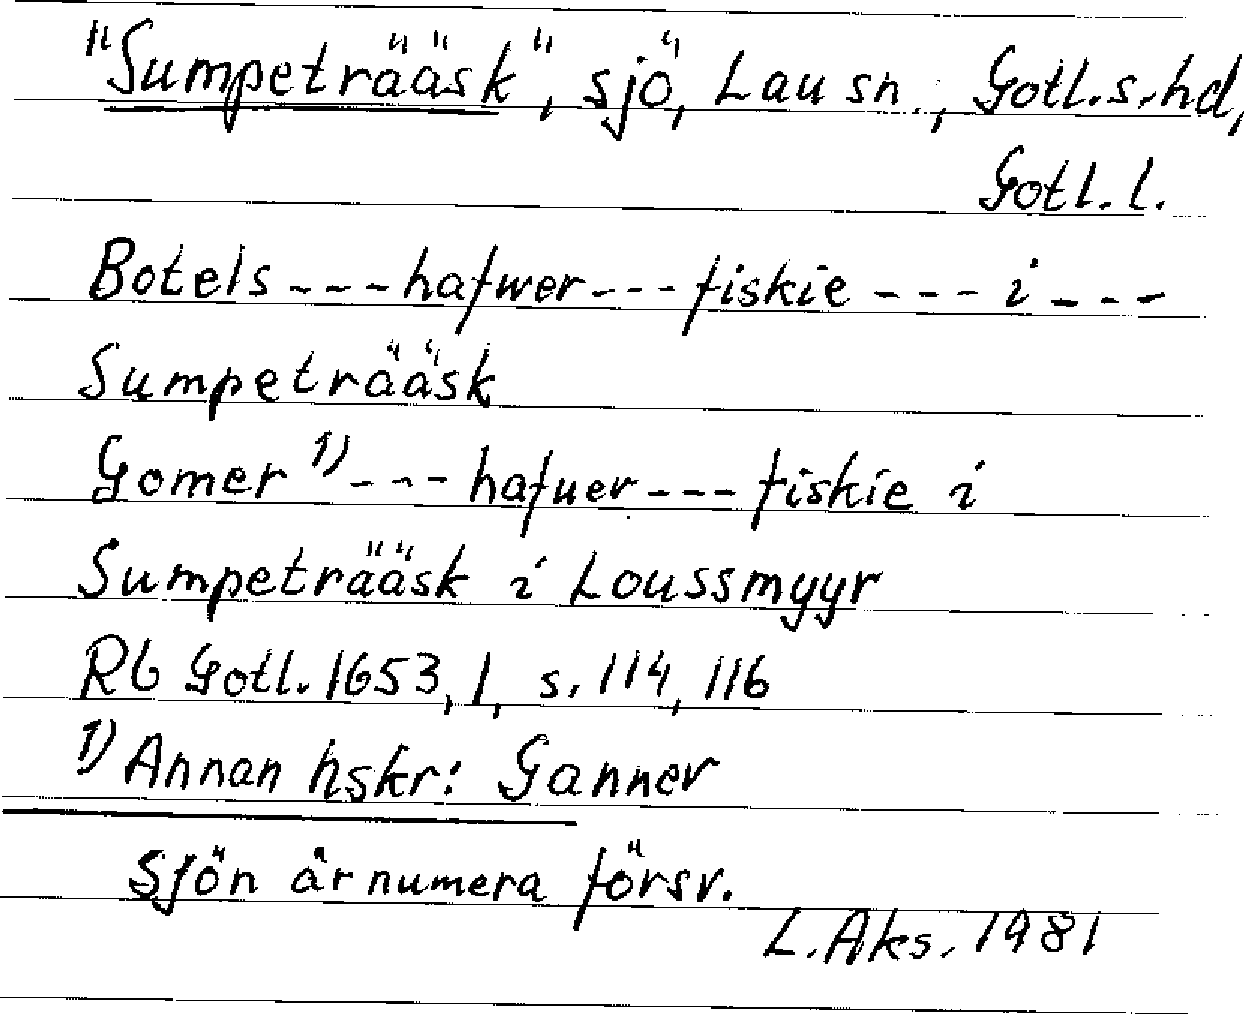 "Sumpeträäsk", sjö, Lau sn., Gotl.s.hd,
Gotl.l.
Botels --- hafwer --- fiskie --- i ---
Sumpeträäsk
Gomer 1) --- hafuer --- fiskie i
Sumpeträäsk i Loussmyyr
Rb Gotl. 1653, 1, s. 114, 116
1) Annan hskr: Ganner
Sjön är numera försv.
L.Aks. 1981